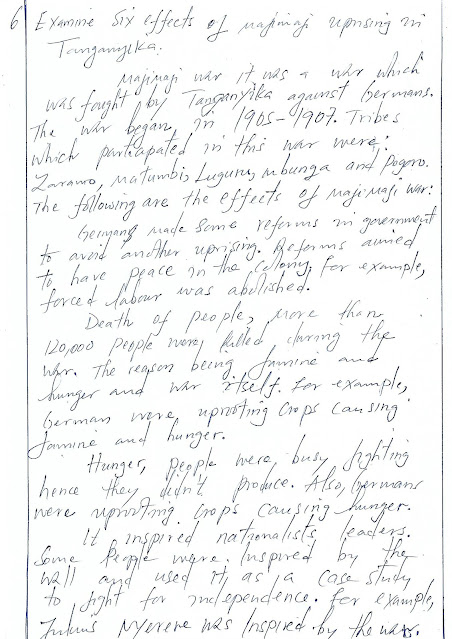 6 Examine Six effects of majimaji uprising in
Tanganyika.
majimaji war it was a war which
was fought by Tanganyika against Germans.
The war began, in 1905-1907. Tribes
which participated in this war were:
Zaramo, Matumbi, Luguru, Mbunga and Pogoro.
The following are the effects of Maji Maji War:
Germans made some reforms in government
to avoid another uprising. Reforms aimed
to have peace in the colony, for example,
forced labour was abolished.
Death of people, more than
120,000 people were killed during the
war. The reason being famine and
hunger and war itself. For example,
German were uprooting crops causing
famine and hunger.
Hunger, people were busy fighting
hence they didn't produce. Also, Germans
were uprooting crops causing hunger.
It inspired nationalists leaders.
Some people were inspired by the
wall and used it, as a case study
to fight for independence. For example,
Julius Nyerere was inspired by the war.